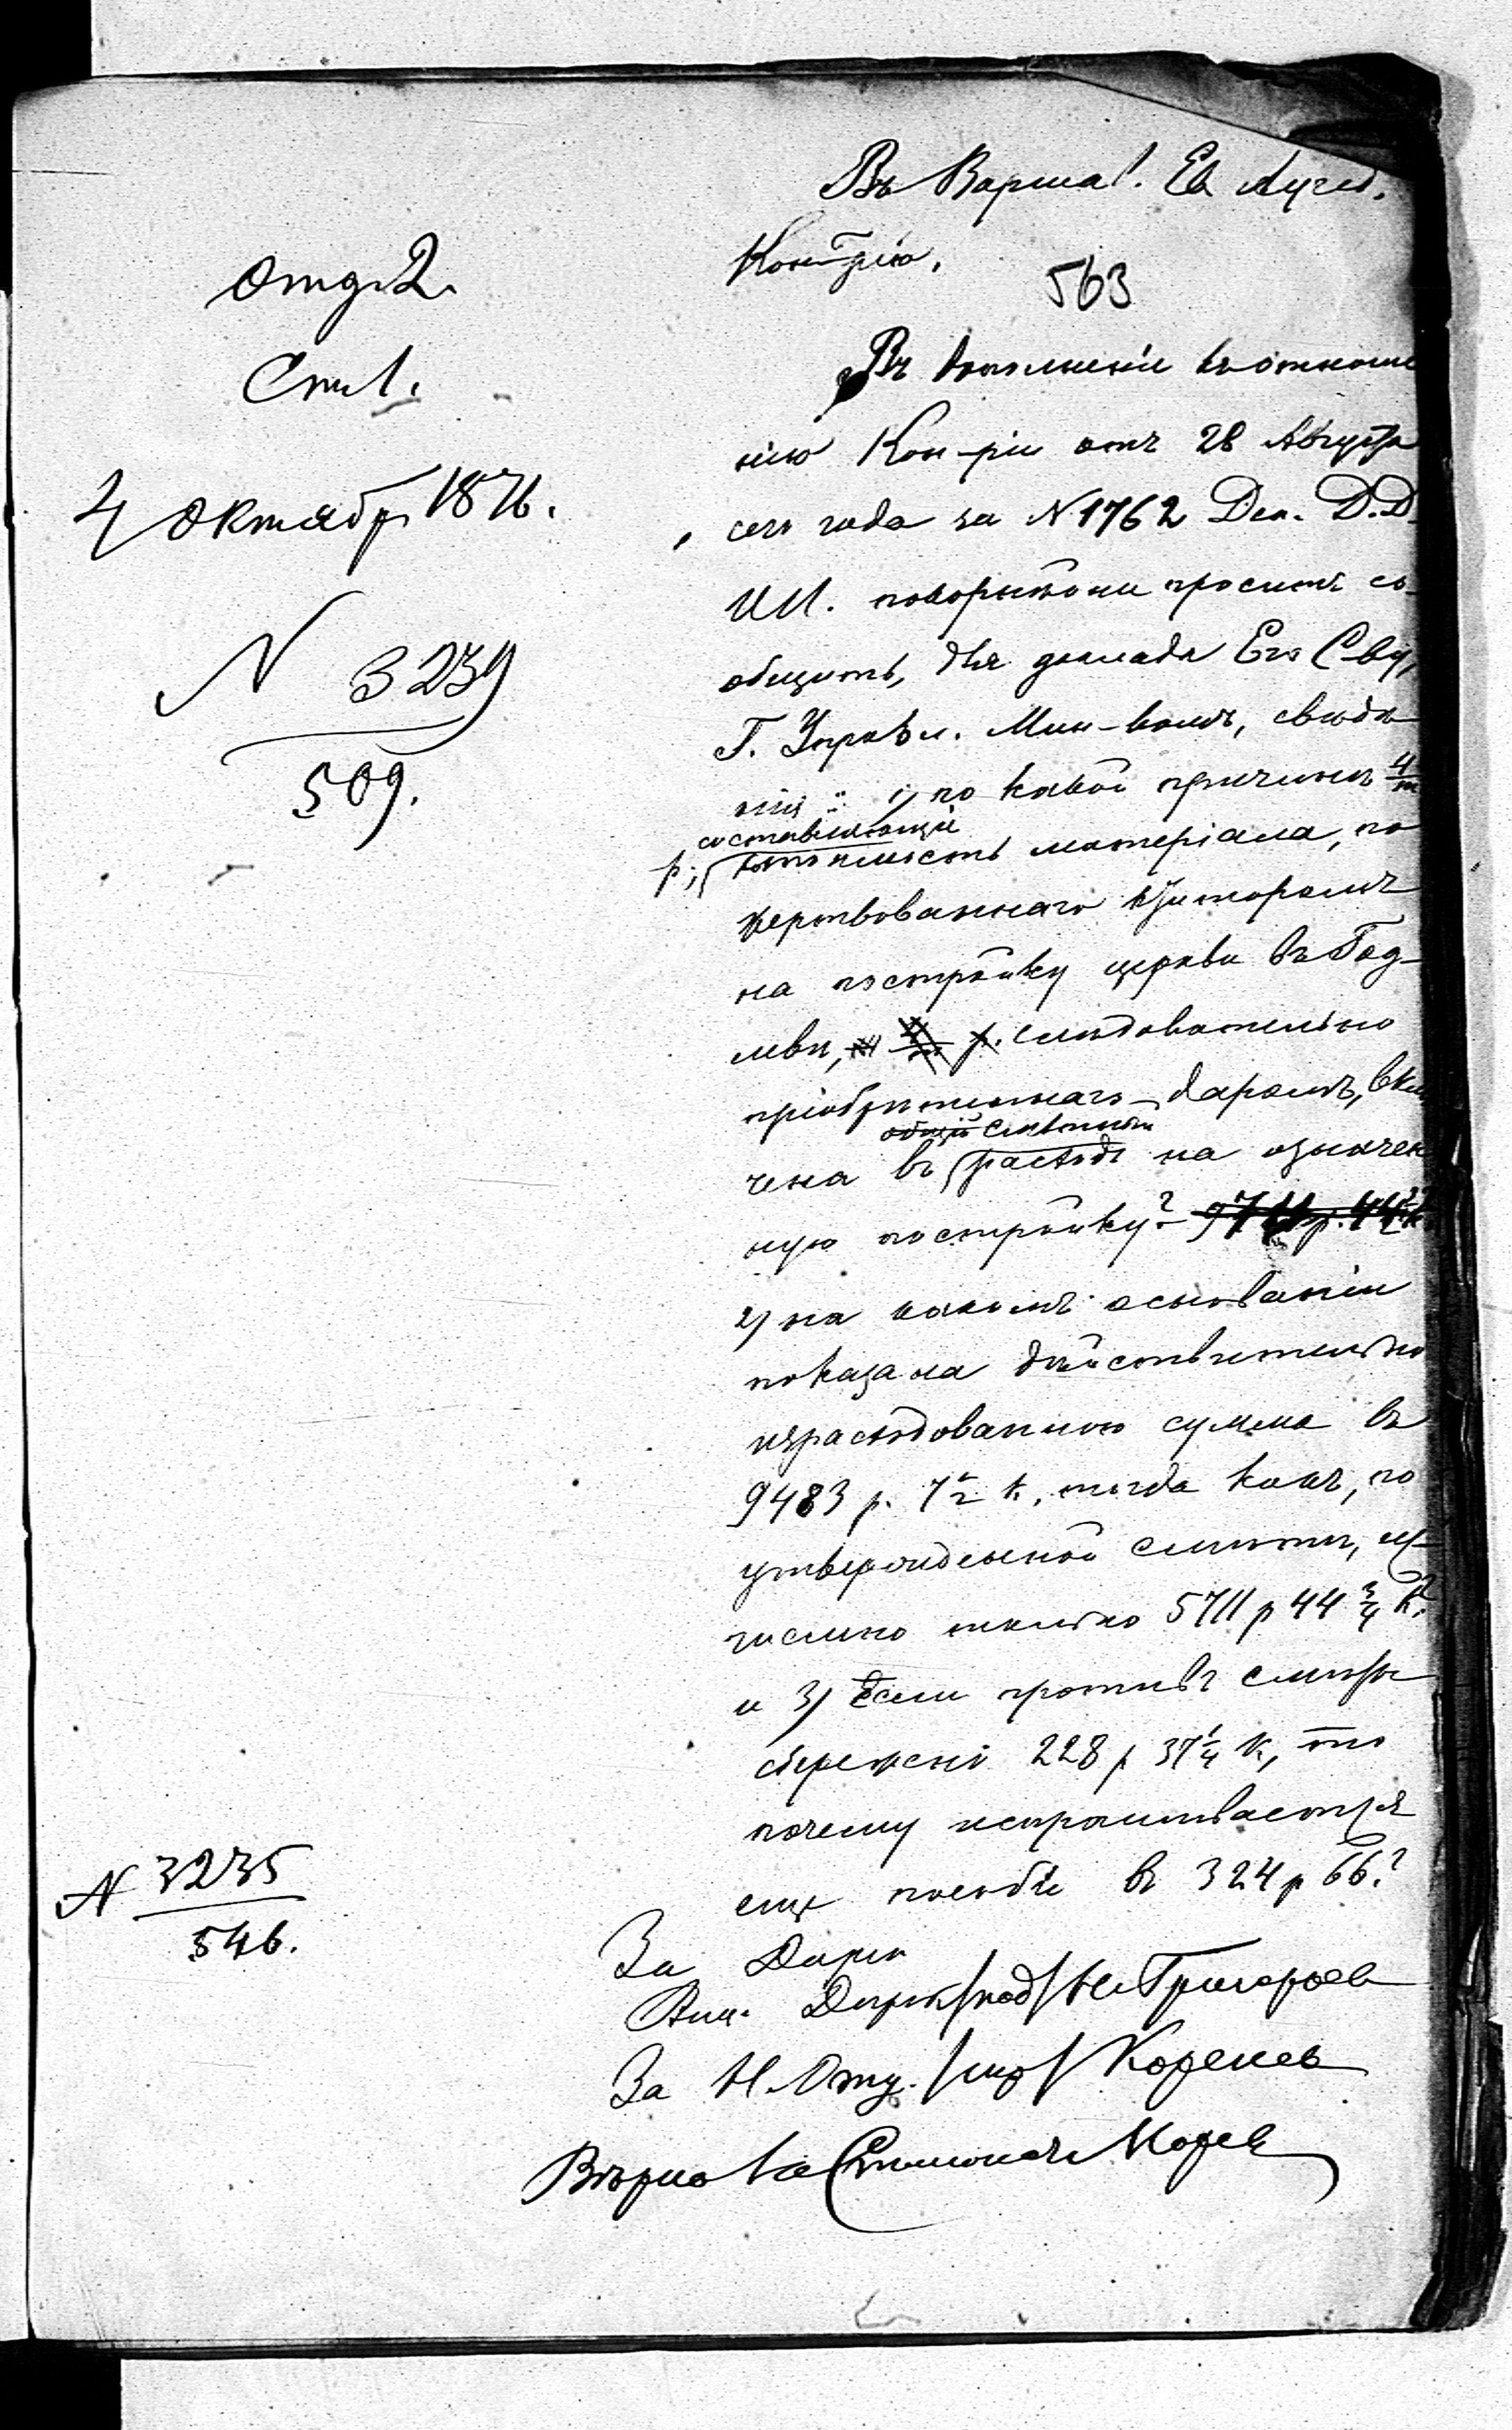 Въ Варшав. Ев Аугсб.
Кон-рію.
563
Отд. 2.
Стл 1.
4 Октябр 1876.
N 3239
509.
Въ дополненіе къ отноше
нію Кон-ріи отъ 28 Августа
сего года за N 1762 Деп. Д. Д.
И. И. покорнѣйше проситъ со-
общить, для доклада Его С-ву,
Г. Управл. Мин-вомъ, свѣдѣ
нія: 1) по какой причинѣ 4/т
составляющіе
р; стоимость матеріала, по
жертвованнаго
на постройку церкви въ
слѣдовательно
пріобрѣтеннаго даромъ, вклю
общій смѣтный
чена въ расходъ на означен
ную постройку?
2) на какомъ основаніи
показана дѣйствительно
израсходованною сумма въ
9483 р. 7½ к, тогда какъ, по
утвержденной смѣтѣ, ис-
числено только 5711 р 44 ¾ к?
и 3) если противъ смѣты
сбережені 228 р 37¼ к, то
почему испрашивается
еще пособіе въ 324 р 66?
N 3235
546.
За Дирек
Виц. Дирек /под/ Н. Григорьев
За Н. Отд. /под/ Коренев
Вѣрно За Столонач.